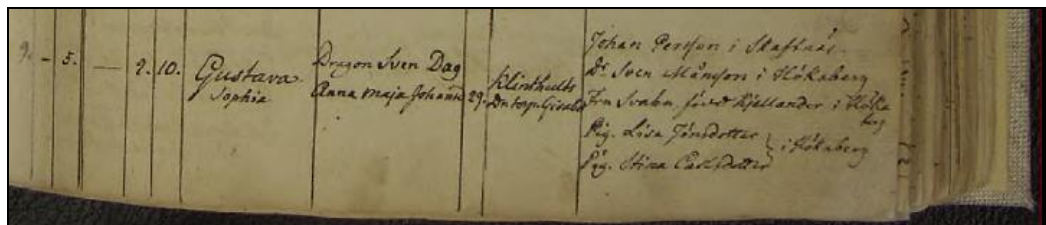 9. - 5. — 2. 10.
Gustava
Sophia
Dragon Sven Dag
Anna Maja Johans
29.
Klinthults
Dr torp. Gisabo
Johan Persson i Skaftaås.
Dr Sven Månsson i Hökaberg
Fru Svahn, född Kjellander i Höka
berg
Pig. Lisa Jönsdotter
Pig. Stina Carlsdotter
} i Hökaberg